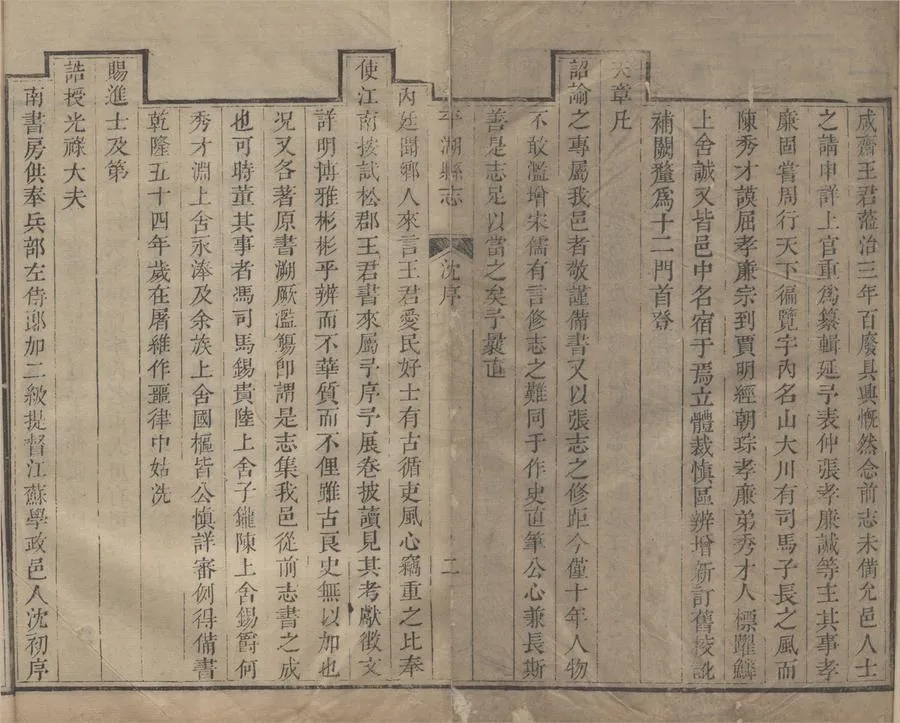 咸齋王君蒞治三年百廢具興慨然念前志未備允邑人士
之請申詳上官重爲纂輯延予表仲張孝廉誠等主其事孝
廉固嘗周行天下徧覽宇內名山大川有司馬子長之風而
陳秀才謨屈孝廉宗到賈明經朝琮孝廉弟秀才人標躍鱗
上舍誠又皆邑中名宿于焉立體裁慎區辨增新訂舊棱訛
補闕釐爲十二門首登
天章凡
詔諭之專屬我邑者敬謹備書又以張志之修距今僅十年人物
不敢濫增宋儒有言修志之難同于作史直筆公心兼長斯
善是志足以當之矣予曩直
平湖縣志 沈序 二
內廷聞鄉人來言王君愛民好士有古循吏風心竊重之比奉
使江南按試松郡王君書來屬予序予展卷披讀見其考獻徵文
詳明博雅彬彬乎辨而不華質而不俚雖古良史無以加也
況又各著原書溯厥濫觴卽謂是志集我邑從前志書之成
也可時董其事者馮司馬錫貴陸上舍子鑨陳上舍錫爵何
秀才淵上舍永溙及余族上舍國樞皆公慎詳審例得備書
乾隆五十四年歲在屠維作噩律中姑洗
賜進士及第
誥授光祿大夫
南書房供奉兵部左侍郎加二級提督江蘇學政邑人沈初序